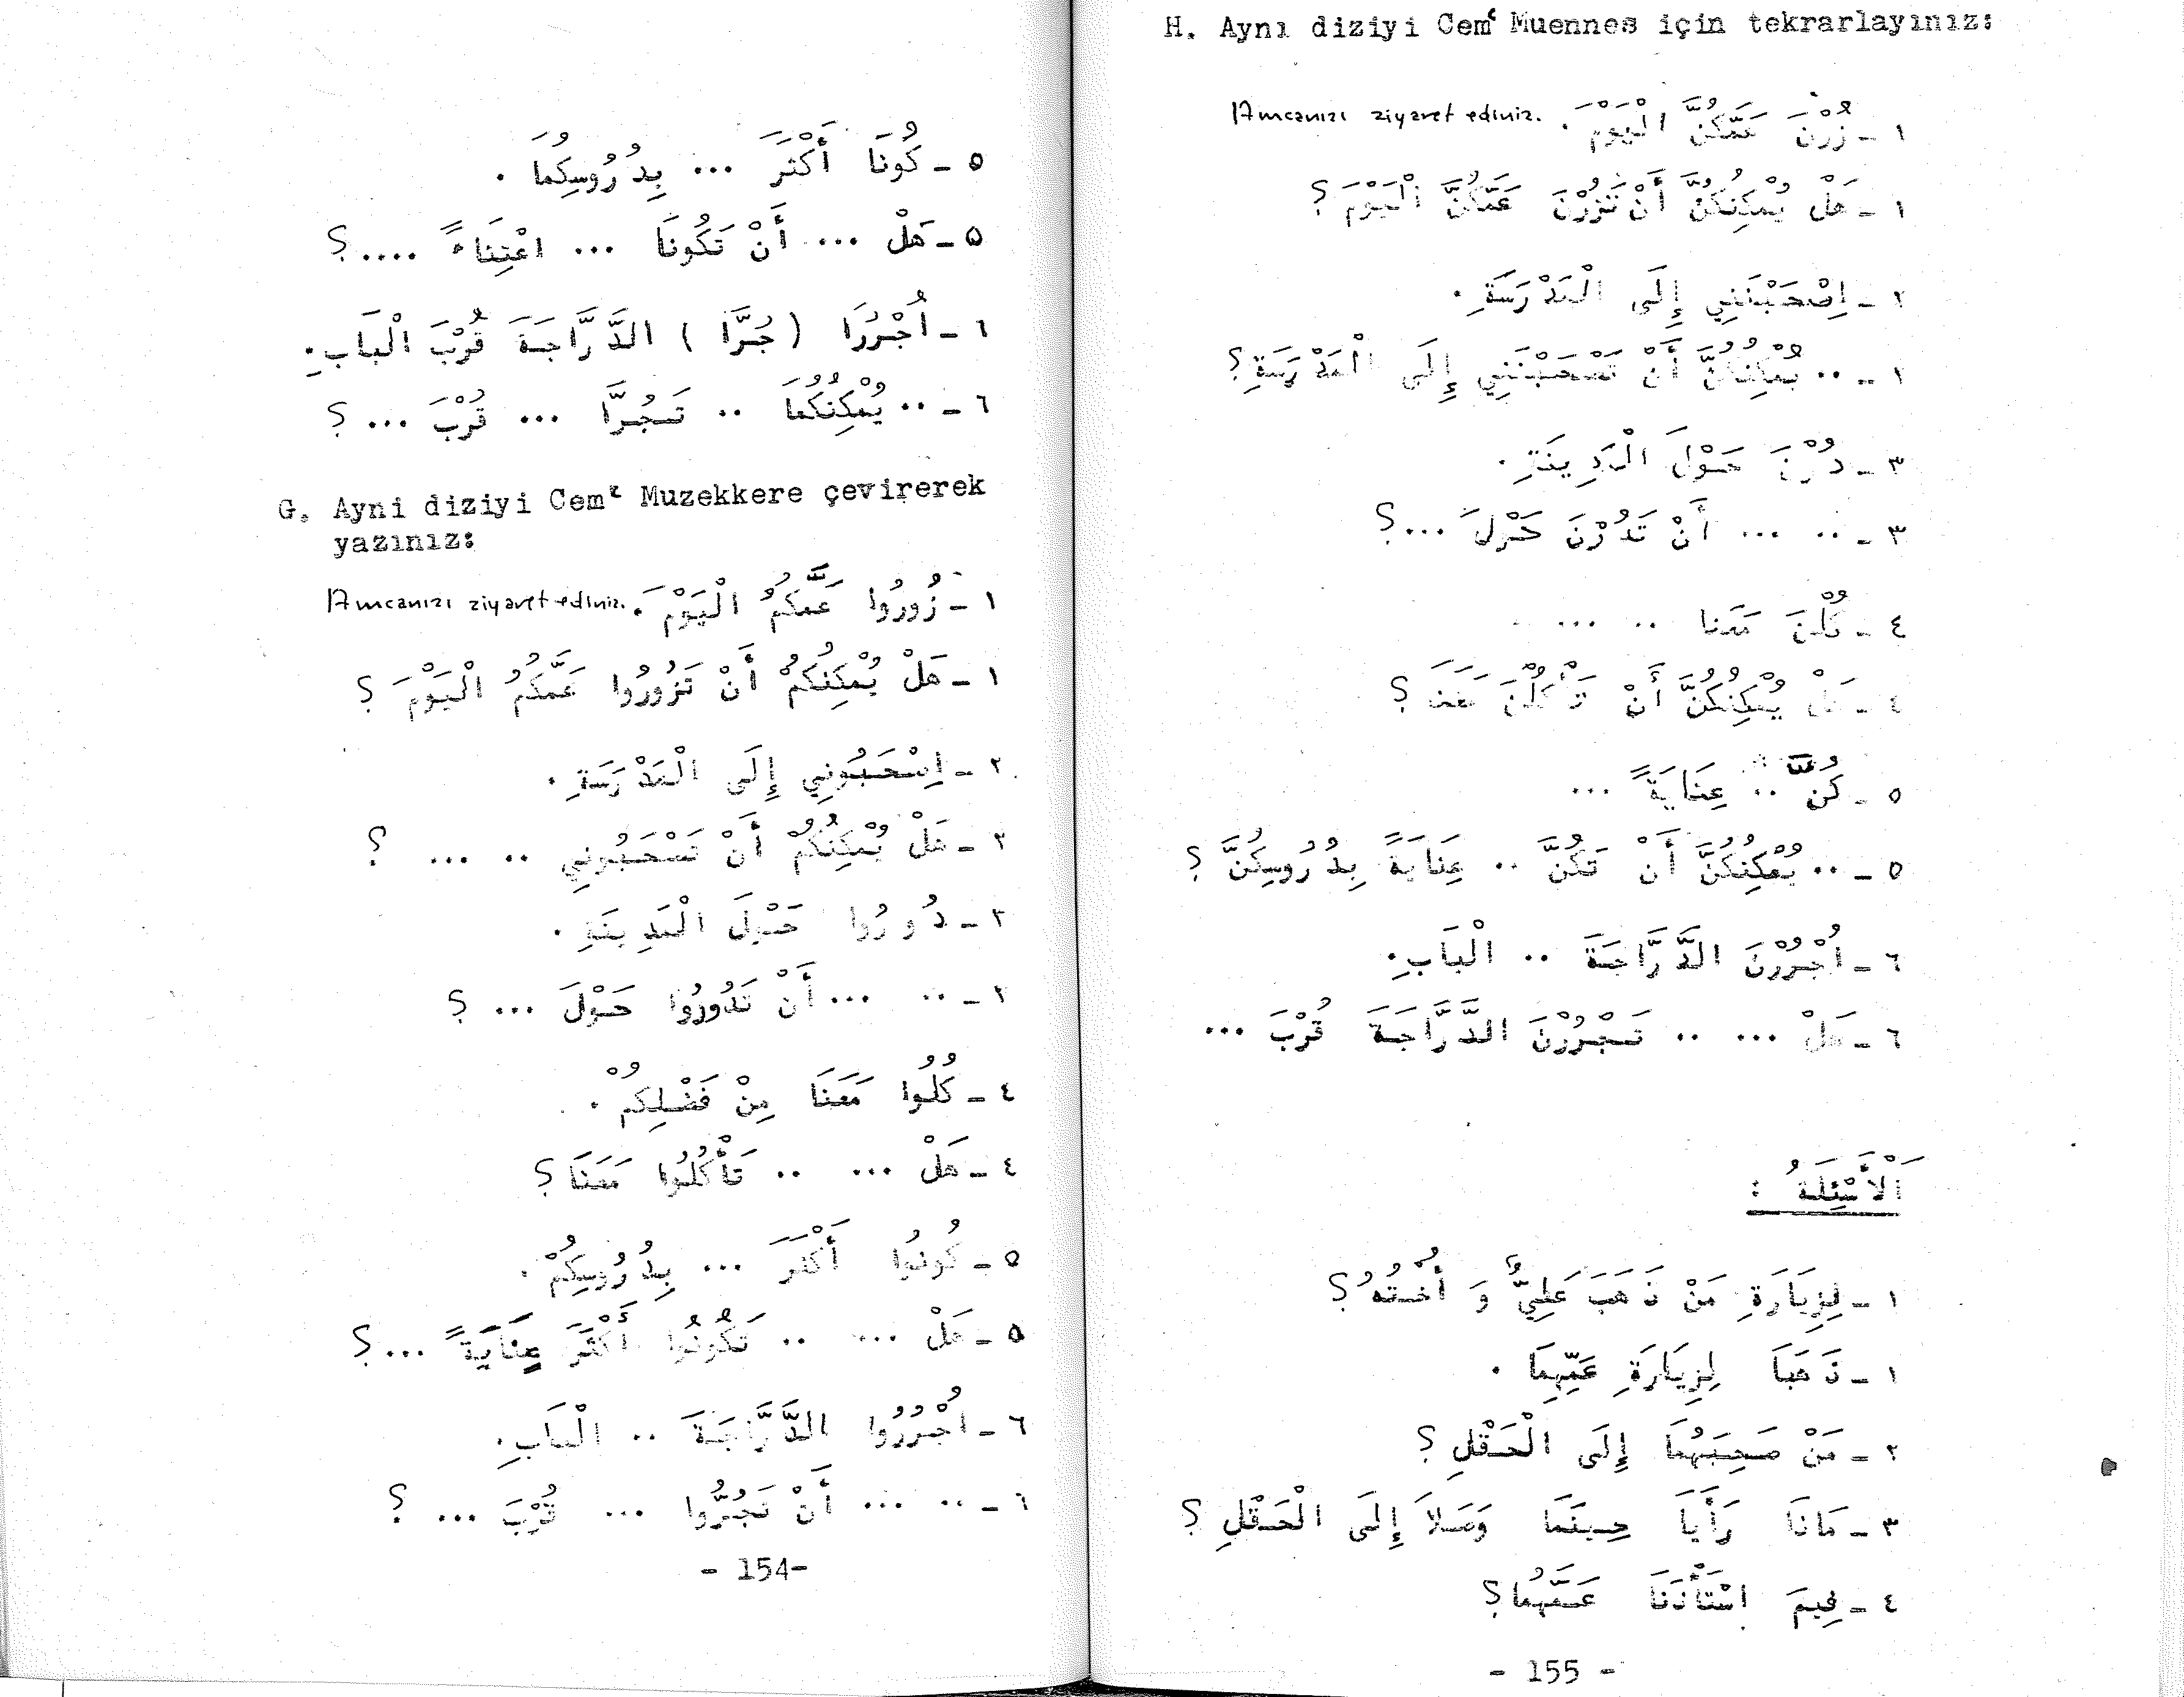 ٥ ـ كُونَا أَكْثَرَ ... بِدُرُوسِكُمَا .
٥ ـ هَلْ ... أَنْ تَكُونَا ... اعْتِنَاءً ....؟
٦ ـ اُجْرُرَا ( جُرَّا ) الدَّرَّاجَةَ قُرْبَ الْبَابِ.
٦ ـ .. يُمْكِنُكُمَا .. تَجُرَّا ... قُرْبَ ... ؟
G. Ayni diziyi Cemᶜ Muzekkere çevirerek
yazınız:
١ ـ زُورُوا عَمَّكُمُ الْيَوْمَ . Amcanızı ziyaret ediniz.
١ ـ هَلْ يُمْكِنُكُمْ أَنْ تَزُورُوا عَمَّكُمُ الْيَوْمَ ؟
٢ ـ اِصْحَبُونِي إِلَى الْمَدْرَسَةِ .
٢ ـ هَلْ يُمْكِنُكُمْ أَنْ تَصْحَبُونِي .. ... ؟
٣ ـ دُورُوا حَوْلَ الْمَدِينَةِ .
٣ ـ .. ... أَنْ تَدُورُوا حَوْلَ ... ؟
٤ ـ كُلُوا مَعَنَا مِنْ فَضْلِكُمْ .
٤ ـ هَلْ ... .. تَأْكُلُوا مَعَنَا ؟
٥ ـ كُونُوا أَكْثَرَ ... بِدُرُوسِكُمْ .
٥ ـ هَلْ ... .. تَكُونُوا أَكْثَرَ عِنَايَةً ...؟
٦ ـ اُجْرُرُوا الدَّرَّاجَةَ .. الْبَابِ.
٦ ـ .. ... أَنْ تَجُرُّوا ... قُرْبَ ... ؟
- 154-
H. Aynı diziyi Cemᶜ Muennes için tekrarlayınız:
١ ـ زُرْنَ عَمَّكُنَّ الْيَوْمَ . Amcanızı ziyaret ediniz.
١ ـ هَلْ يُمْكِنُكُنَّ أَنْ تَزُرْنَ عَمَّكُنَّ الْيَوْمَ ؟
٢ ـ اِصْحَبْنَنِي إِلَى الْمَدْرَسَةِ .
٢ ـ .. يُمْكِنُكُنَّ أَنْ تَصْحَبْنَنِي إِلَى الْمَدْرَسَةِ ؟
٣ ـ دُرْنَ حَوْلَ الْمَدِينَةِ .
٣ ـ .. ... أَنْ تَدُرْنَ حَوْلَ ...؟
٤ ـ كُلْنَ مَعَنَا .. ... .
٤ ـ هَلْ يُمْكِنُكُنَّ أَنْ تَأْكُلْنَ مَعَنَا ؟
٥ ـ كُنَّ .. عِنَايَةً ...
٥ ـ .. يُمْكِنُكُنَّ أَنْ تَكُنَّ .. عِنَايَةً بِدُرُوسِكُنَّ ؟
٦ ـ اُجْرُرْنَ الدَّرَّاجَةَ .. الْبَابِ.
٦ ـ هَلْ ... .. تَجْرُرْنَ الدَّرَّاجَةَ قُرْبَ ...
اَلْأَسْئِلَةُ :
١ ـ لِزِيَارَةِ مَنْ ذَهَبَ عَلِيٌّ وَ أُخْتُهُ ؟
١ ـ ذَهَبَا لِزِيَارَةِ عَمِّهِمَا .
٢ ـ مَنْ صَحِبَهُمَا إِلَى الْحَقْلِ ؟
٣ ـ مَاذَا رَأَيَا حِينَمَا وَصَلَا إِلَى الْحَقْلِ ؟
٤ ـ فِيمَ اسْتَأْذَنَا عَمَّهُمَا ؟
- 155 -